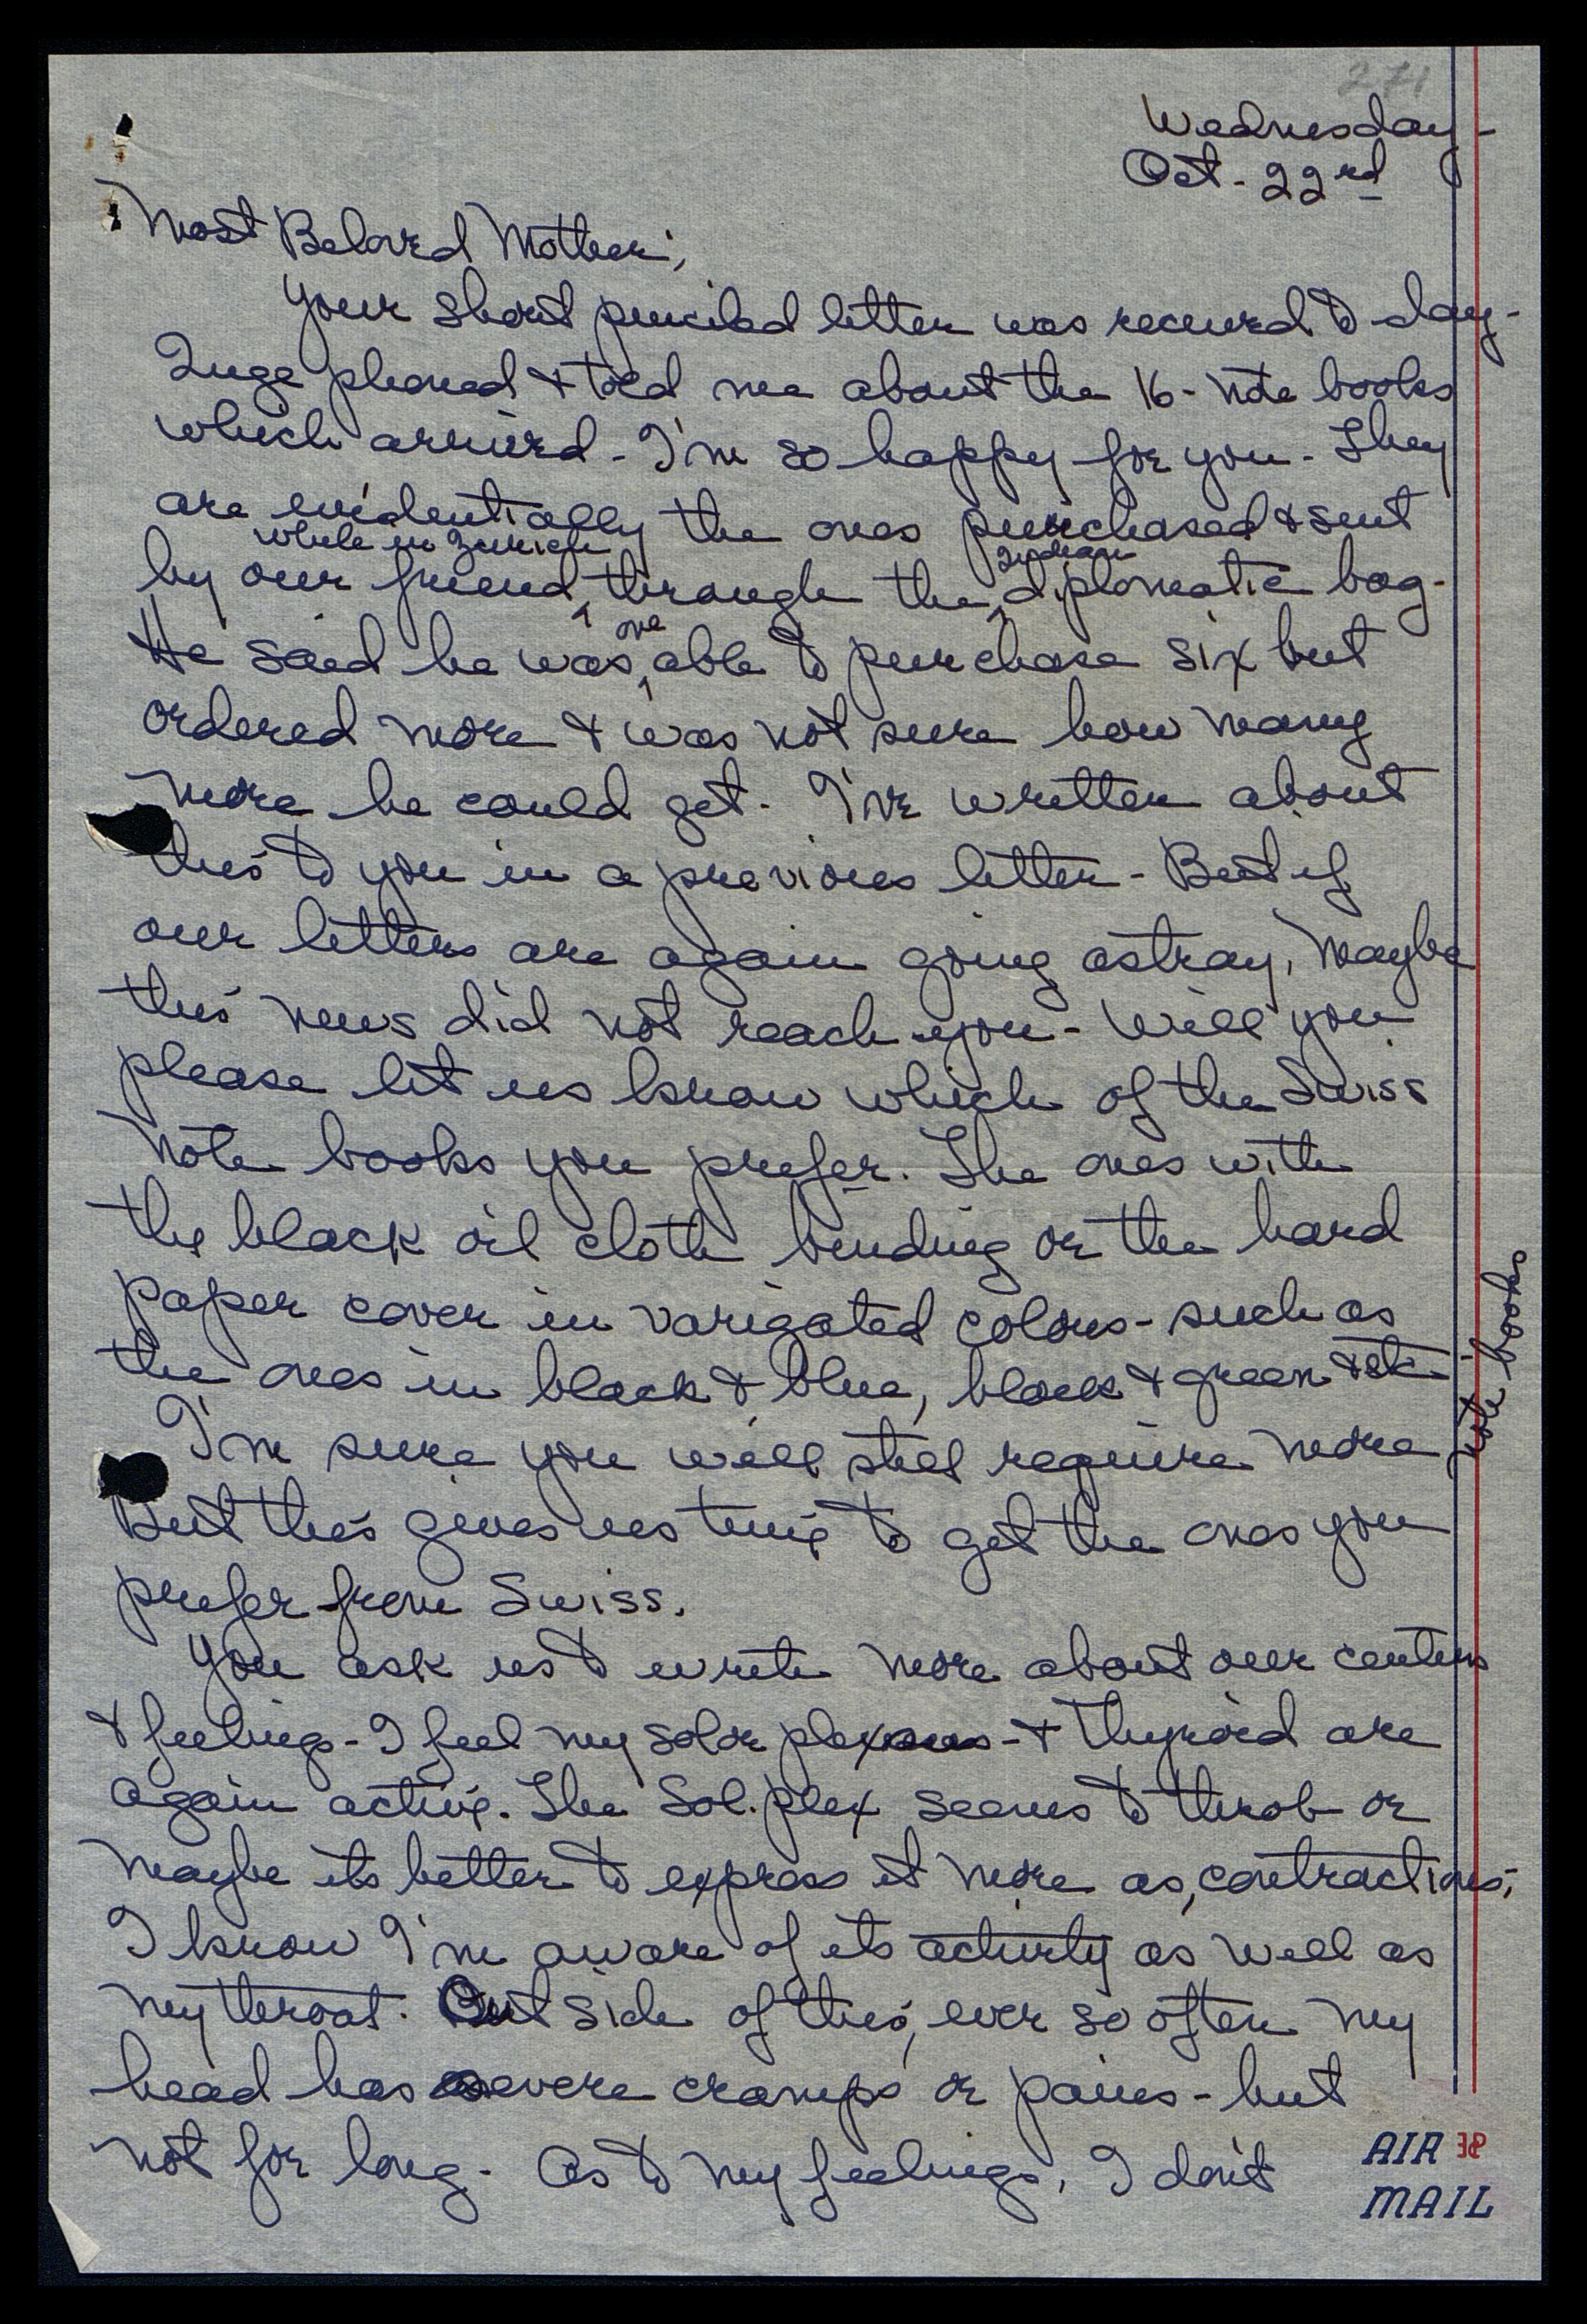 271
Wednesday-
Oct- 22nd
Most Beloved Mother;
Your short penciled letter was received to-day-
Inge phoned & told me about the 16- note books
which arrived - I'm so happy for you - They
are evidentially the ones purchased & sent
while in Zurich Indian
by our friend, through the diplomatic bag-
one
He said he was able to purchase six but
ordered more & was not sure how many
more he could get. I've written about
this to you in a previous letter - But if
our letters are again going astray, maybe
this news did not reach you - Will you
please let us know which of the Swiss
note books you prefer. The ones with
the black oil cloth binding or the hard
paper cover in varigated colors - such as
the ones in black & blue, black & green & etc
note books
I'm sure you will still require more
But this gives us time to get the ones you
prefer from Swiss.
You ask us to write more about our centers
& feelings - I feel my solar plexus - & thyroid are
again active. The Sol. plex seems to throb or
maybe its better to express it more as, contractions;
I know I'm aware of its activity as well as
my throat. Outside of this, ever so often my
head has severe cramps or pains - but
not for long. As to my feelings, I don't
AIR
MAIL